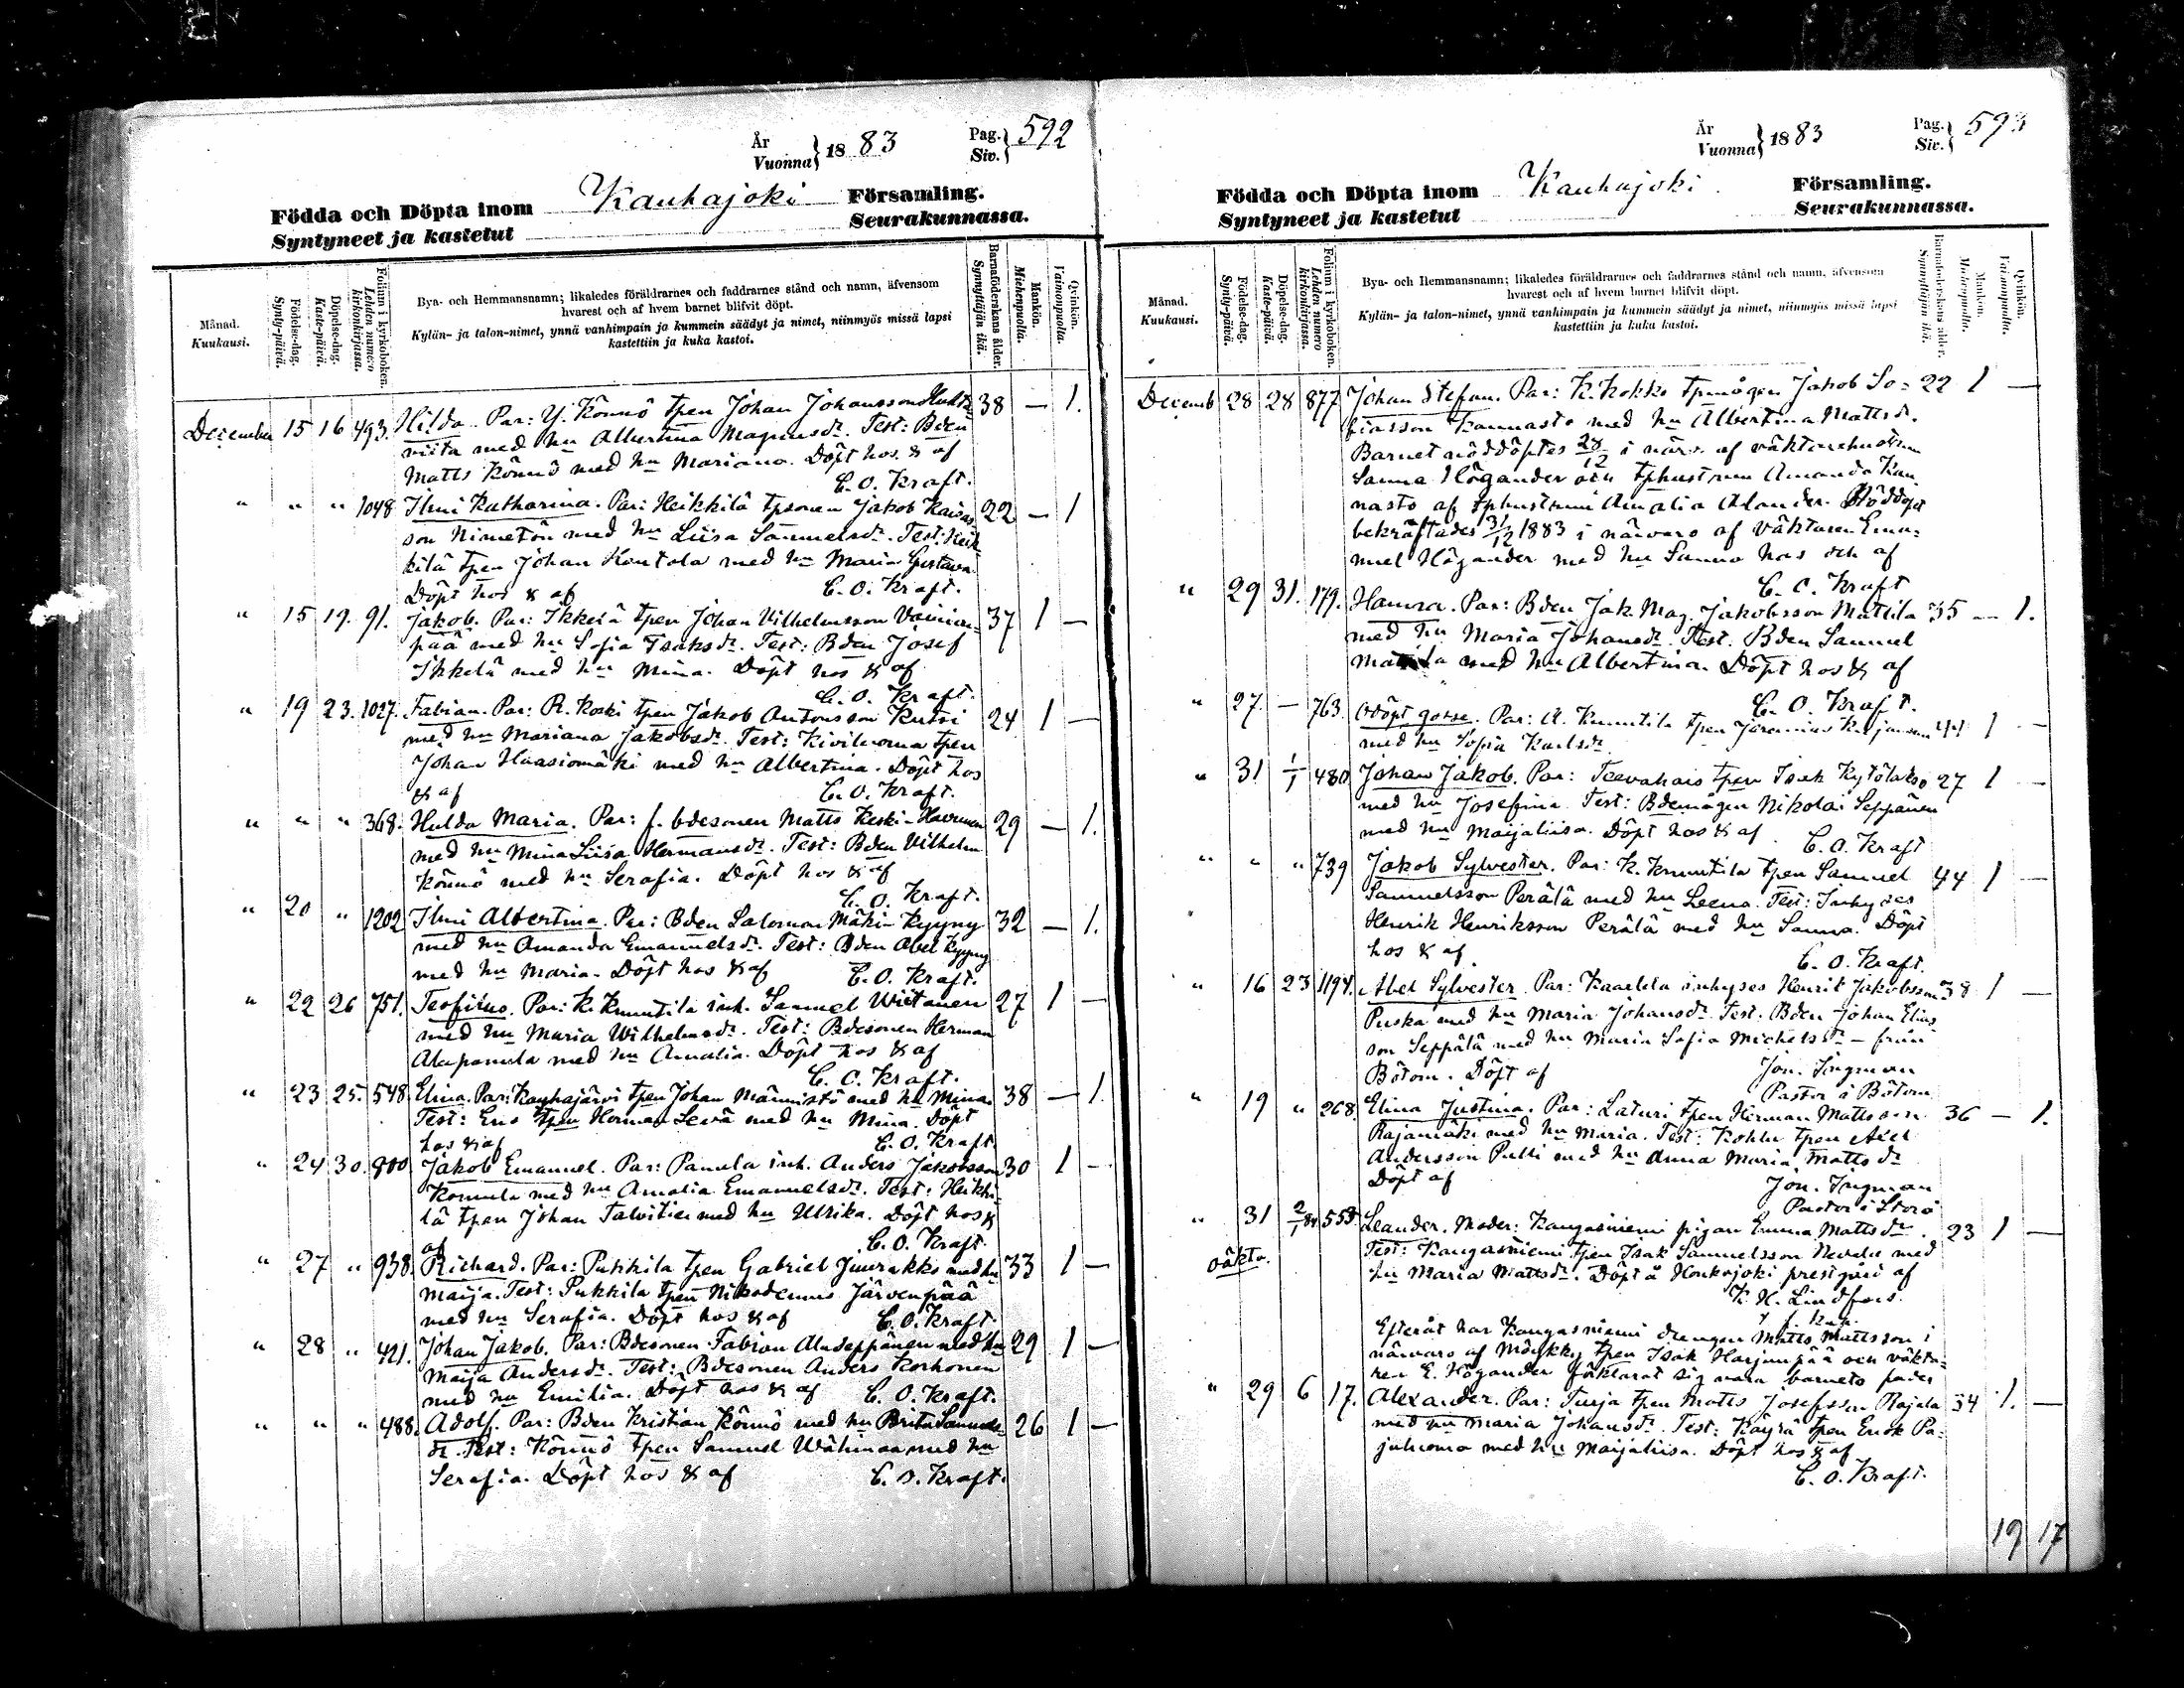 År
Vuonna} 1883
Pag.
Siv.} 592
Födda och Döpta inom Kauhajoki Församling.
Syntyneet ja kastetut Seurakunnassa.
Månad.
Kuukausi.
Födelse-dag.
Synty-päivä.
Döpelse-dag.
Kaste-päivä.
Folium i kyrkoboken.
Lehden numero kirkonkirjassa.
Bya- och Hemmansnamn; likaledes föräldrarnes och faddrarnes stånd och namn, äfvensom
hvarest och af hvem barnet blifvit döpt.
Kylän- ja talon-nimet, ynnä vanhimpain ja kummein säädyt ja nimet, niinmyös missä lapsi
kastettiin ja kuka kastoi.
Barnaföderskans ålder.
Synnyttäjän ikä.
Mankön.
Miehenpuolia.
Qvinkön.
Vaimonpuolia.
December 15 16 493. Hilda. Par: Y. Könnö tpen Johan Johansson 38 — 1.
viita med hu Albertina Magnusdr. Test: Bden
Matts Könnö med hu Mariana. Döpt hos & af
C. O. Kraft.
" " " 1048 Ilmi Katharina. Par: Heikkilä tpsonen Jakob Kaisas 22 — 1
son Nimetön med hu Liisa Samuelsdr. Test: Heik
kilä tpen Johan Kontola med hu Maria Gustava.
Döpt hos & af C. O. Kraft.
" 15 19. 91. Jakob. Par: Ikkelä tpen Johan Vilhelmsson Vainion 37 1 —
pää med hu Sofia Isaksdr. Test: Bden Josef
Ikkelä med hu Mina. Döpt hos & af
C. O. Kraft.
" 19 23. 1027. Fabian. Par: R. Koski tpen Jakob Antonsson Kutsi 24 1 —
med hu Mariana Jakobsdr. Test: Kiviluoma tpen
Johan Haasiomäki med hu Albertina. Döpt hos
& af C. O. Kraft.
" " " 368. Hulda Maria. Par: f. bdesonen Matts Keski-Havunen 29 — 1.
med hu Mina Liisa Hermansdr. Test: Bden Vilhelm
Könnö med hu Serafia. Döpt hos & af
C. O. Kraft.
" 20 " 1202 Ilmi Albertina. Par: Bden Salomon Mäki-Kyyny 32 — 1.
med hu Amanda Emanuelsdr. Test: Bden Abel Kyyny
med hu Maria. Döpt hos & af C. O. Kraft.
" 22 26 751. Teofilus. Par: K. Knuutila inh. Samuel Wietanen 27 1 —
med hu Maria Wilhelmsdr. Test: Bdesonen Herman
Alapanula med hu Amalia. Döpt hos & af
C. O. Kraft.
" 23 25. 548. Elina. Par: Kauhajärvi tpen Johan Männistö med hu Mina 38 — 1.
Test: Ens tpen Herman Levä med hu Mina. Döpt
hos & af C. O. Kraft.
" 24 30. 800 Jakob Emanuel. Par: Panula inh. Anders Jakobsson 30 1 —
Komula med hu Amalia Emanuelsdr. Test: Heikki-
lä tpen Johan Talvitie med hu Ulrika. Döpt hos &
af C. O. Kraft.
" 27 " 938. Richard. Par: Pukkila tpen Gabriel Juurakko med hu 33 1 —
Maija. Test: Pukkila tpen Nikodemus Järvenpää
med hu Serafia. Döpt hos & af C. O. Kraft.
" 28 " 421. Johan Jakob. Par: Bdesonen Fabian Alaseppänen med hu 29 1 —
Maija Andersdr. Test: Bdesonen Anders Korhonen
med hu Emilia. Döpt hos & af C. O. Kraft.
" " " 488. Adolf. Par: Bden Kristian Könnö med hu Brita Samuels 26 1 —
dr. Test: Könnö tpen Samuel Wähmaa med hu
Serafia. Döpt hos & af C. O. Kraft.
År
Vuonna} 1883
Pag.
Siv.} 593
Födda och Döpta inom Kauhajoki Församling.
Syntyneet ja kastetut Seurakunnassa.
Månad.
Kuukausi.
Födelse-dag.
Synty-päivä.
Döpelse-dag.
Kaste-päivä.
Folium i kyrkoboken.
Lehden numero kirkonkirjassa.
Bya- och Hemmansnamn; likaledes föräldrarnes och faddrarnes stånd och namn, äfvensom
hvarest och af hvem barnet blifvit döpt.
Kylän- ja talon-nimet, ynnä vanhimpain ja kummein säädyt ja nimet, niinmyös missä lapsi
kastettiin ja kuka kastoi.
Barnaföderskans ålder.
Synnyttäjän ikä.
Mankön.
Miehenpuolia.
Qvinkön.
Vaimonpuolia.
Decemb 28 28 877 Johan Stefan. Par: K. Kokko tpmågen Jakob So= 22 1 —
fiasson Kannasto med hu Albertina Mattsdr.
Barnet nöddöptes 28/12 i närv. af väktarehustrun
Sanna Högander och tphustrun Amanda Kan
nasto af tphustrun Amalia Alander. Nöddopet
bekräftades 31/12 1883 i närvaro af väktaren Ema=
nuel Högander med hu Sanna hos och af
C. O. Kraft
" 29 31. 179. Hanna. Par: Bden Jak. Mag. Jakobsson Mattila 35 — 1.
med hu Maria Johansdr. Test. Bden Samuel
Mattila med hu Albertina. Döpt hos & af
C. O. Kraft.
" 27. — 763. Odöpt gosse. Par: A. Knuutila tpen Jeremias 44 1 —
med hu Sofia Karlsdr.
" 31 1/1 480 Johan Jakob. Par: Teevahais tpen Isak Kytölakso 27 1 —
med hu Josefina. Test: Bdemågen Nikolai Seppänen
med hu Maijaliisa. Döpt hos & af C. O. Kraft
" " " 739 Jakob Sylvester. Par: K. Knuutila tpen Samuel 44 1 —
Samuelsson Perälä med hu Leena. Test: Inhyses
Henrik Henriksson Perälä med hu Sanna. Döpt
hos & af C. O. Kraft.
" 16 23 1194. Abel Sylvester. Par: inhyses Henrik Jakobsson 38 1 —
Puska med hu Maria Johansdr. Test. Bden Johan Elias
son Seppälä med hu Maria Sofia Michelsdr — från
Bötom. Döpt af Jon. Ingman
Pastor i Bötom
" 19 " 268. Elina Justina. Par: Laturi tpen Herman Mattsson 36 — 1.
Rajamäki med hu Maria. Test: tpen Axel
Andersson Pulli med hu Anna Maria Mattsdr
Döpt af Jon. Ingman
Pastor i Storå
" 31 2/1 84 553. Leander. Moder: Kangasniemi pigan Emma Mattsdr. 23 1 —
oäkta. Test: Kangasniemi tpen Isak Samuelsson Nevala med
hu Maria Mattsdr. Döpt å Honkajoki prestgård af
K. H. Lindfors.
Efteråt har Kangasniemi drengen Matts Mattsson i
närvaro af Möykky tpen Isak Harjunpää och väkta=
ren E. Högander förklarat sig vara barnets fader
" 29 6 17. Alexander. Par: Turja tpen Matts Josefsson Rajala 34 1. —
med hu Maria Johansdr. Test: Käyrä tpen Enok Pa=
juluoma med hu Maijaliisa. Döpt hos & af
C. O. Kraft.
19 17